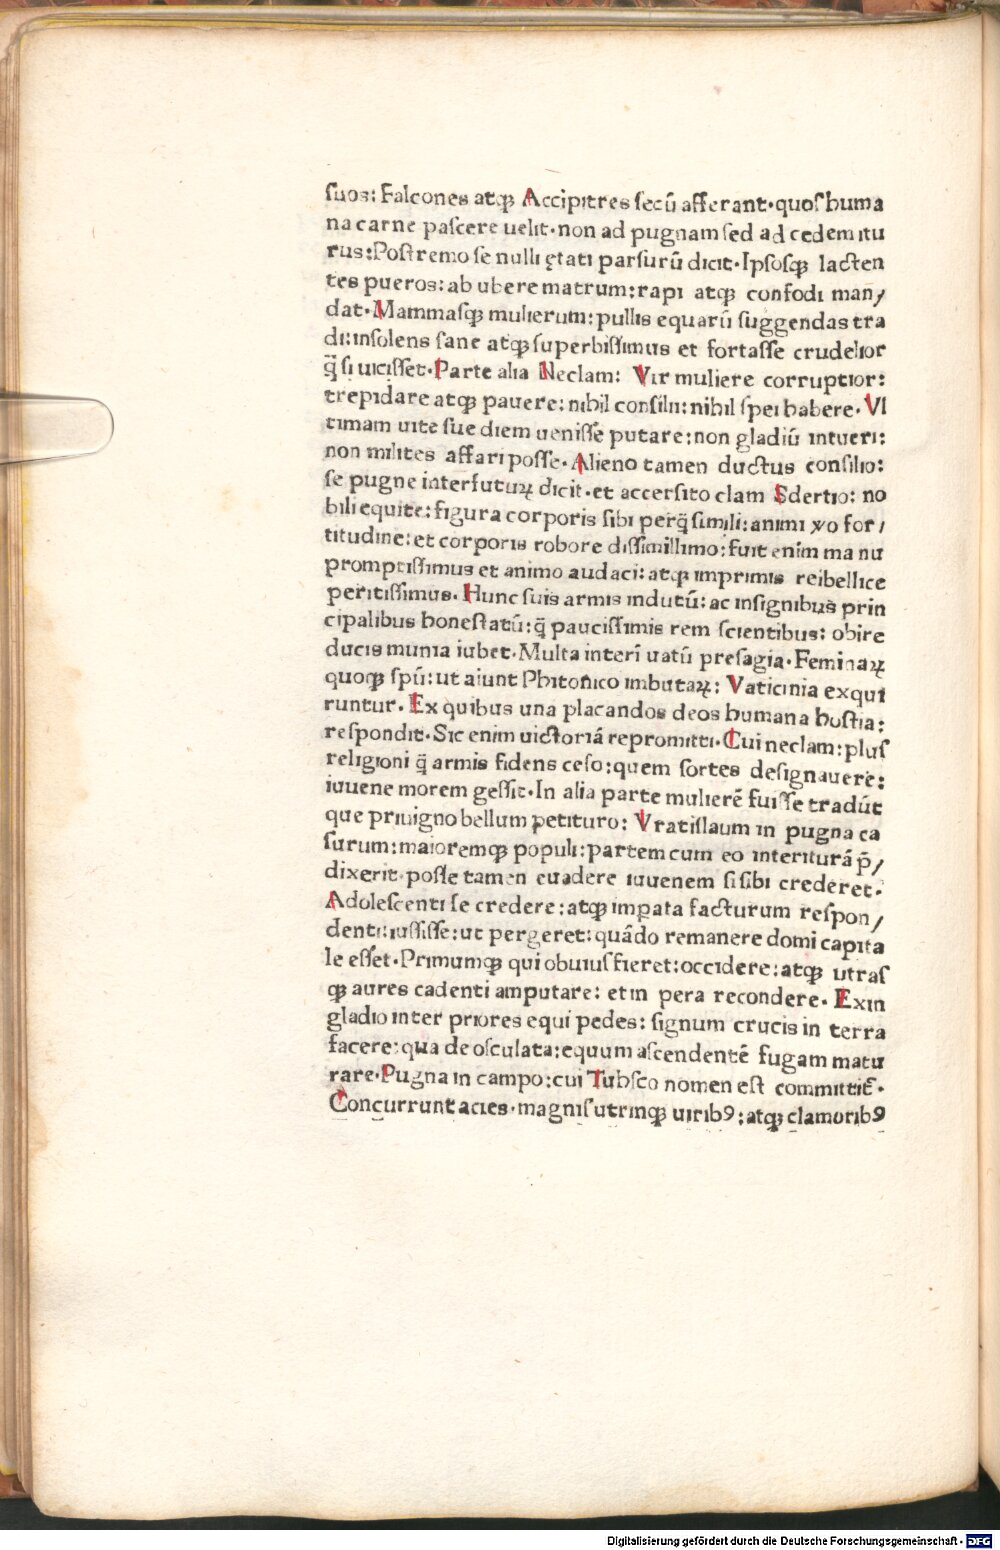 suos: Falcones atqꝫ Accipitres secū afferant· quos huma
na carne pascere uelit· non ad pugnam sed ad cedem itu
rus: Postremo se nulli ętati parsurū dicit· Ipsosqꝫ lacten
tes pueros: ab ubere matrum: rapi atqꝫ confodi man/
dat· Mammasqꝫ mulierum: pullis equarū suggendas tra
di: insolens sane atqꝫ superbissimus et fortasse crudelior
q̄ si uicisset· Parte alia Neclam: Vir muliere corruptior:
trepidare atqꝫ pauere: nihil consilii: nihil spei habere· Vl
timam uite sue diem uenisse putare: non gladiū intueri:
non milites affari posse· Alieno tamen ductus consilio:
se pugne interfuturꝝ dicit· et accersito clam Sdertio: no
bili equite: figura corporis sibi perq̄ simili: animi ꝟo for/
titudine: et corporis robore dissimillimo: fuit enim manu
promptissimus et animo audaci: atqꝫ imprimis rei bellice
peritissimus· Hunc suis armis indutū: ac insignibus prin
cipalibus honestatū: q̄ paucissimis rem scientibus: obire
ducis munia iubet· Multa interī uatū presagia· Feminaꝝ
quoqꝫ spū: ut aiunt Phitonico imbutaꝝ: Vaticinia exqui
runtur· Ex quibus una placandos deos humana hostia:
respondit· Sic enim uictoriā repromitti· Cui neclam: plus
religioni q̄ armis fidens ceso: quem sortes designauere:
iuuene morem gessit· In alia parte mulierē fuisse tradūt
que priuigno bellum petituro: Vratislaum in pugna ca
surum: maioremqꝫ populi: partem cum eo interiturā p̄/
dixerit· posse tamen euadere iuuenem si sibi crederet·
Adolescenti se credere: atqꝫ impata facturum respon/
denti: iussisse: ut pergeret: quādo remanere domi capita
le esset· Primumqꝫ qui obuius fieret: occidere: atqꝫ utras
qꝫ aures cadenti amputare: et in pera recondere· Exin
gladio inter priores equi pedes: signum crucis in terra
facere: qua deosculata: equum ascendentē fugam matu
rare· Pugna in campo: cui Tubsco nomen est committit̄·
Concurrunt acies· magnis utrinqꝫ uirib9: atqꝫ clamorib9
Digitalisierung gefördert durch die Deutsche Forschungsgemeinschaft · DFG